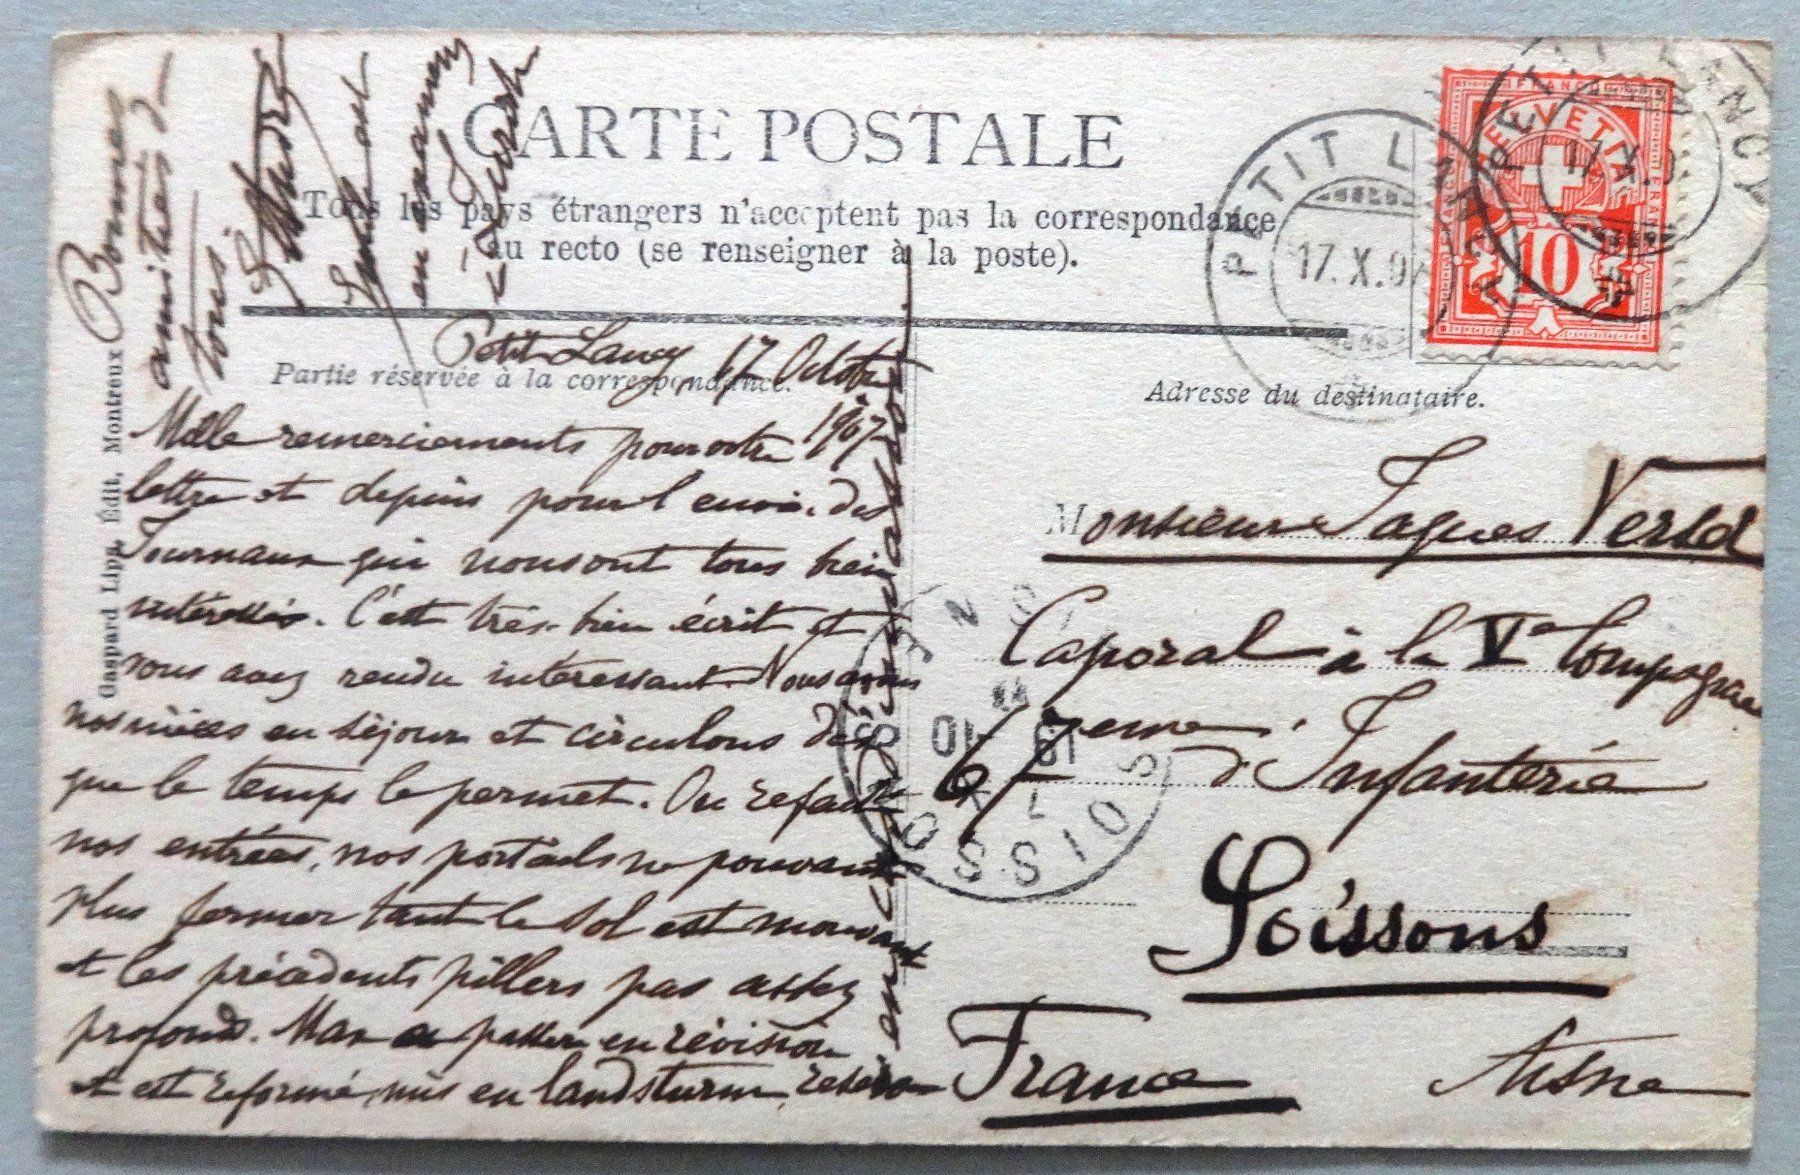 CARTE POSTALE
Tous les pays étrangers n'acceptent pas la correspondance
au recto (se renseigner à la poste).
Partie réservée à la correspondance.
Adresse du destinataire.
Gaspard Lipp, Édit. Montreux
Petit Lancy, 17 Octobre
1907
Mille remerciements pour votre
lettre et depuis pour l'envoi des
Journaux qui nous ont tous bien
intéressés. C'est très bien écrit et
vous avez rendu intéressant. Nous avons
nos nièces en séjour et circulons dès
que le temps le permet. On refait
nos entrées, nos portails ne pouvant
plus fermer tant le sol est mouvant
et les précédents pilliers pas assez
profonds. Max a passer en révision
et est réformé, mis en landsturm, réserve
Bonnes
amitiés à
tous
Monsieur Jaques
Caporal à la Ve Compagnie
67eme d'Infanterie
Soissons
France
Aisne
FRANCO
HELVETIA
10
PETIT LANCY
17.X.07
PETIT LANCY
17.X.0
SOISSONS
AISNE